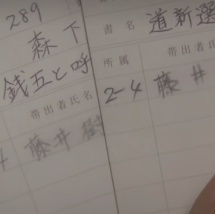 289
森下
銭五と呼
帯出者氏名
藤井
書名 道新選
所属 帯出者氏名
2-4 藤井